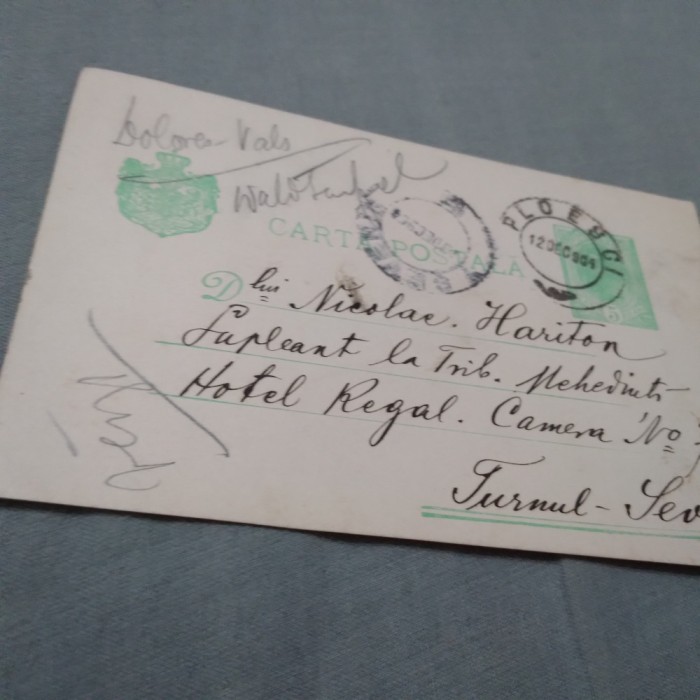 Dolores Vals
CARTA POSTALĂ
PLOESCI
12 DEC 904
5
Dlui Nicolae. Hariton
Supleant la Trib. Mehedinti
Hotel Regal. Camera No
Turnul-Sev